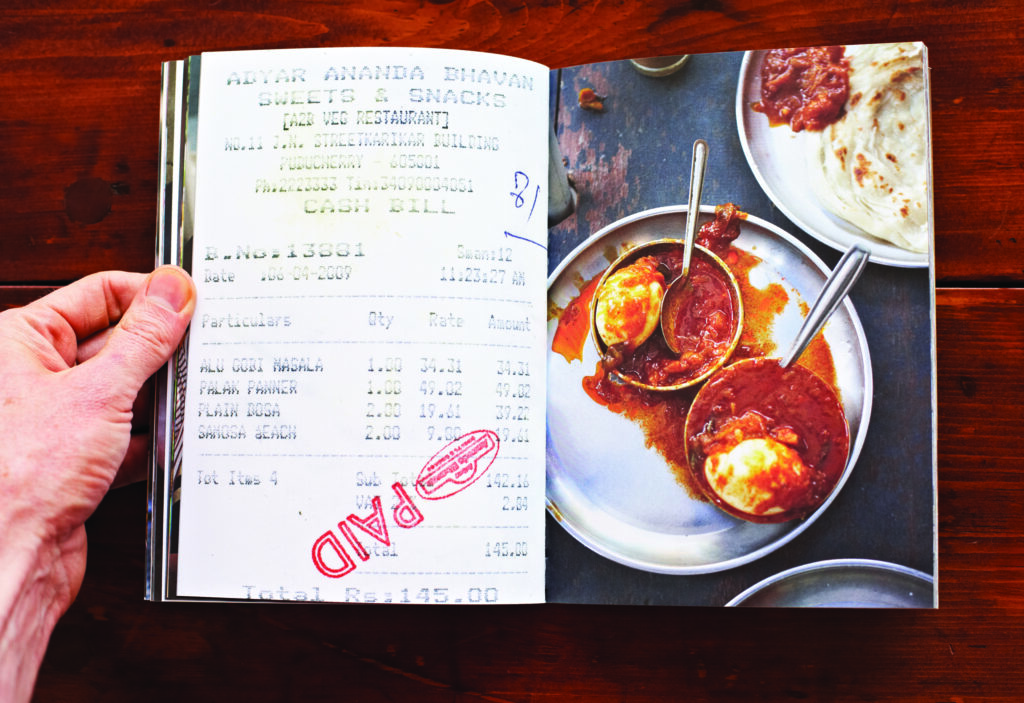 ADYAR ANANDA BHAVAN
SWEETS & SNACKS
[A2B VEG RESTAURANT]
NO.11 J.N. STREETKARIKAR BUILDING
PUDUCHERRY - 605001
PH:2223333 Tin:34090004081
CASH BILL
8/
B.No:13881 Sman:12
Date :06-04-2009 11:23:27 AM
Particulars Qty Rate Amount
ALU GOBI MASALA 1.00 34.31 34.31
PALAK PANNER 1.00 49.02 49.02
PLAIN DOSA 2.00 19.61 39.22
SAMOSA @EACH 2.00 9.80 19.61
Tot Itms 4 Sub 142.16
VAT 2.84
PAID
Total 145.00
Total Rs:145.00